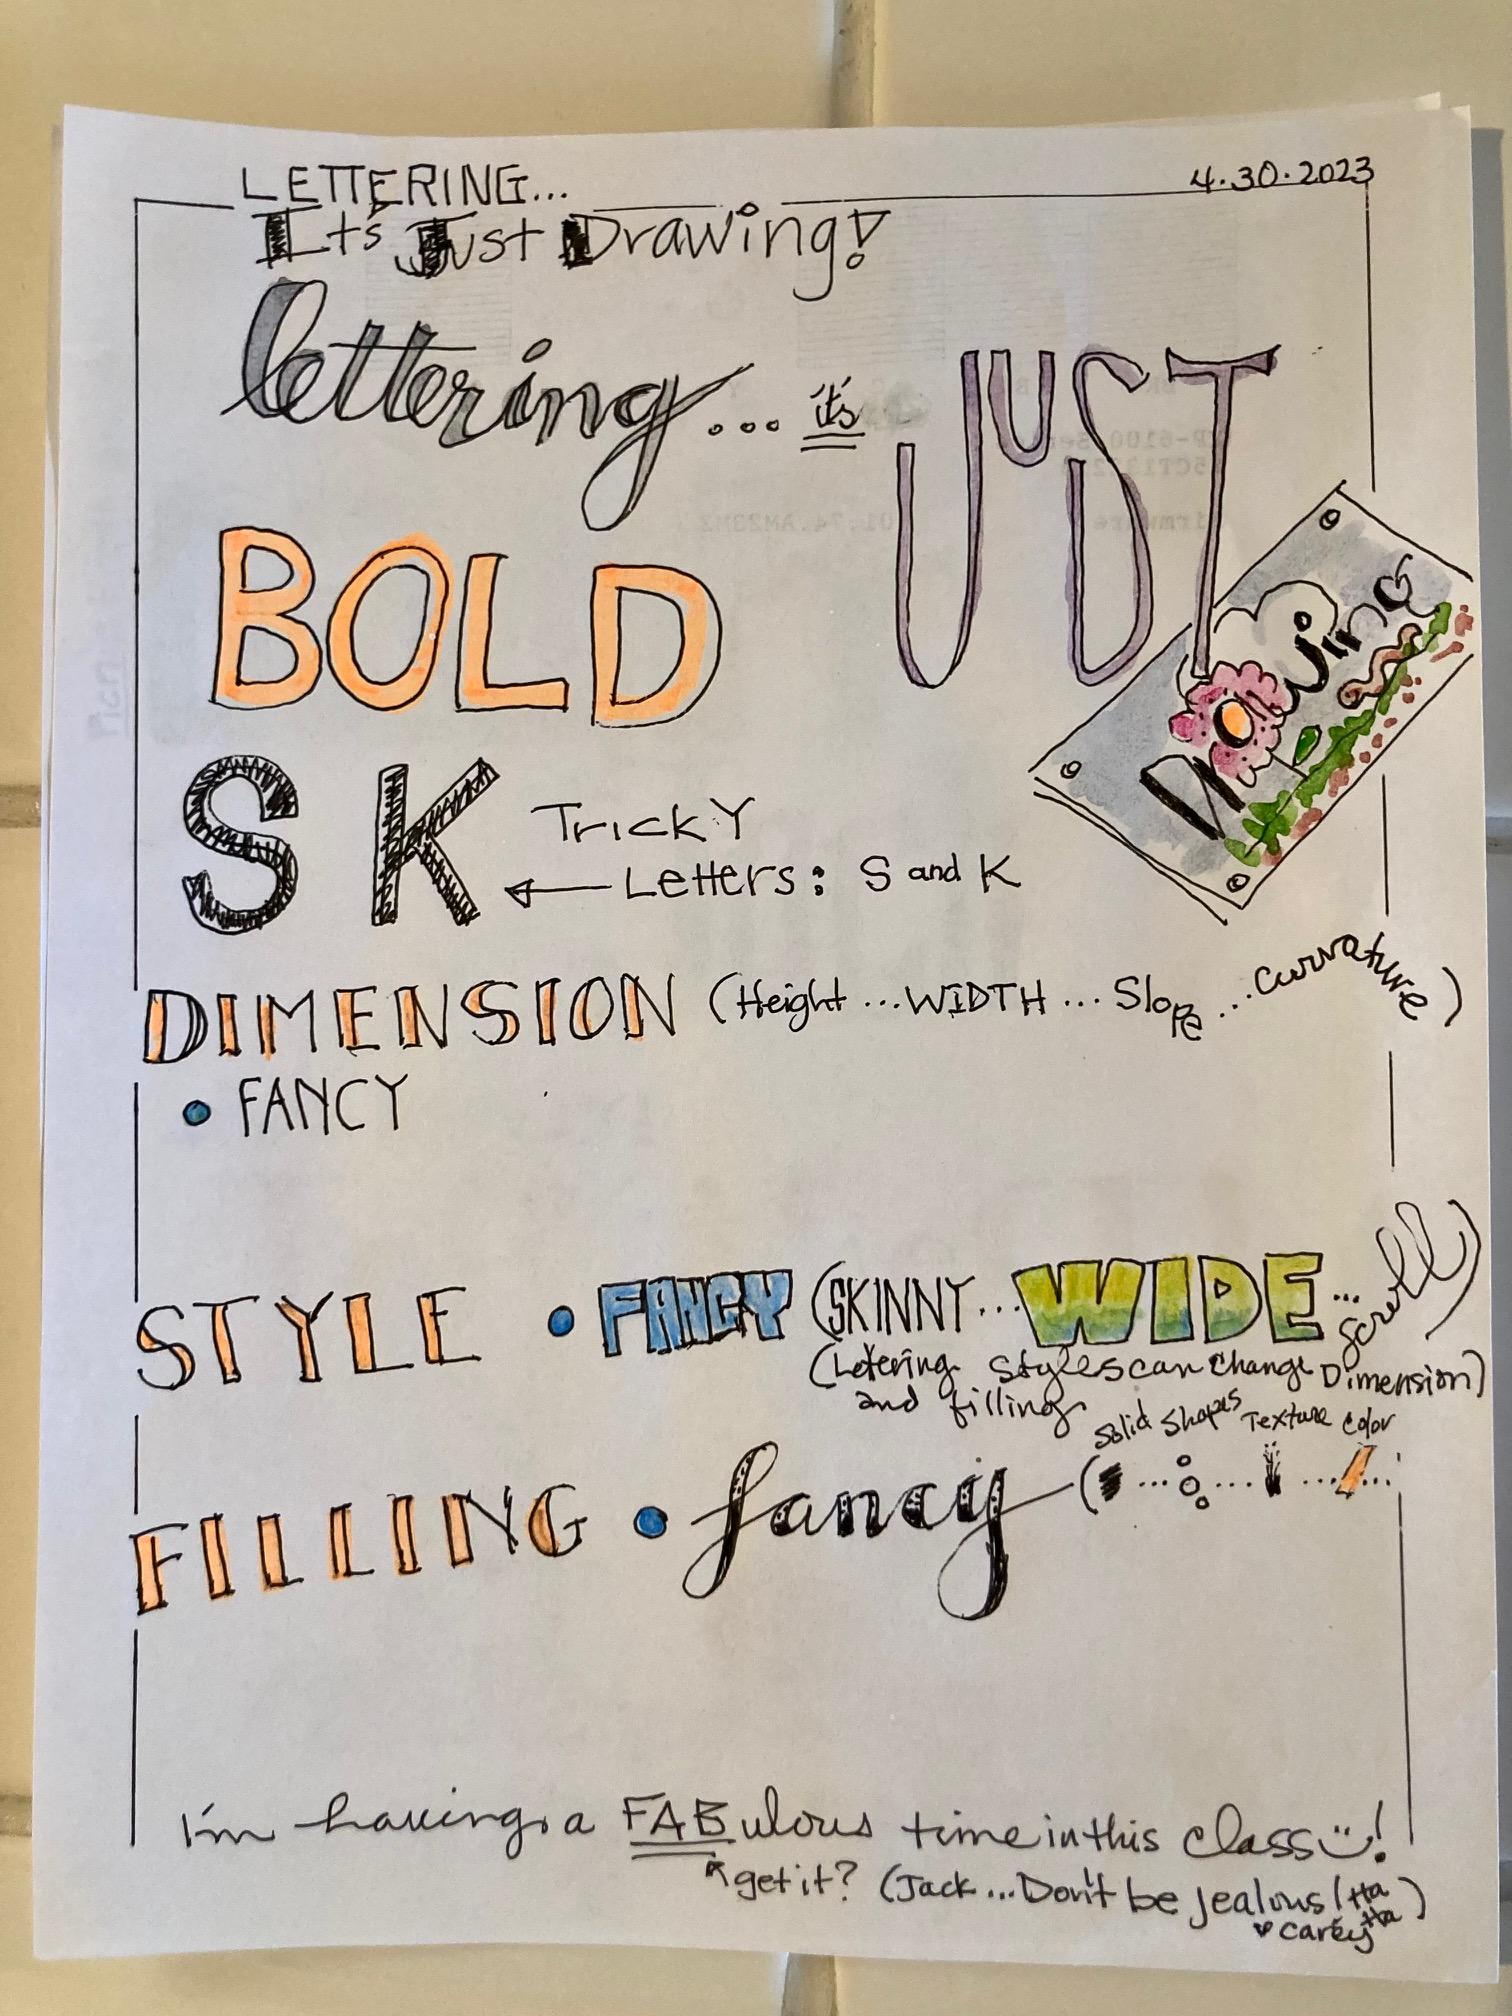 LETTERING...
4.30.2023
It's Just Drawing!
lettering... it's JUST
DRaWinG
BOLD
S K
Tricky
Letters: S and K
DIMENSION (Height ...WIDTH ... Slope ...Curvature)
• FANCY
STYLE • FANCY (SKINNY...WIDE...Scroll)
(Letering Styles can change Dimension)
and filling
Solid Shapes Texture Color
FILLING • fancy (... ... ...
I'm having a FABulous time in this class!
get it? (Jack...Don't be jealous! Ha Ha)
♥ Carey